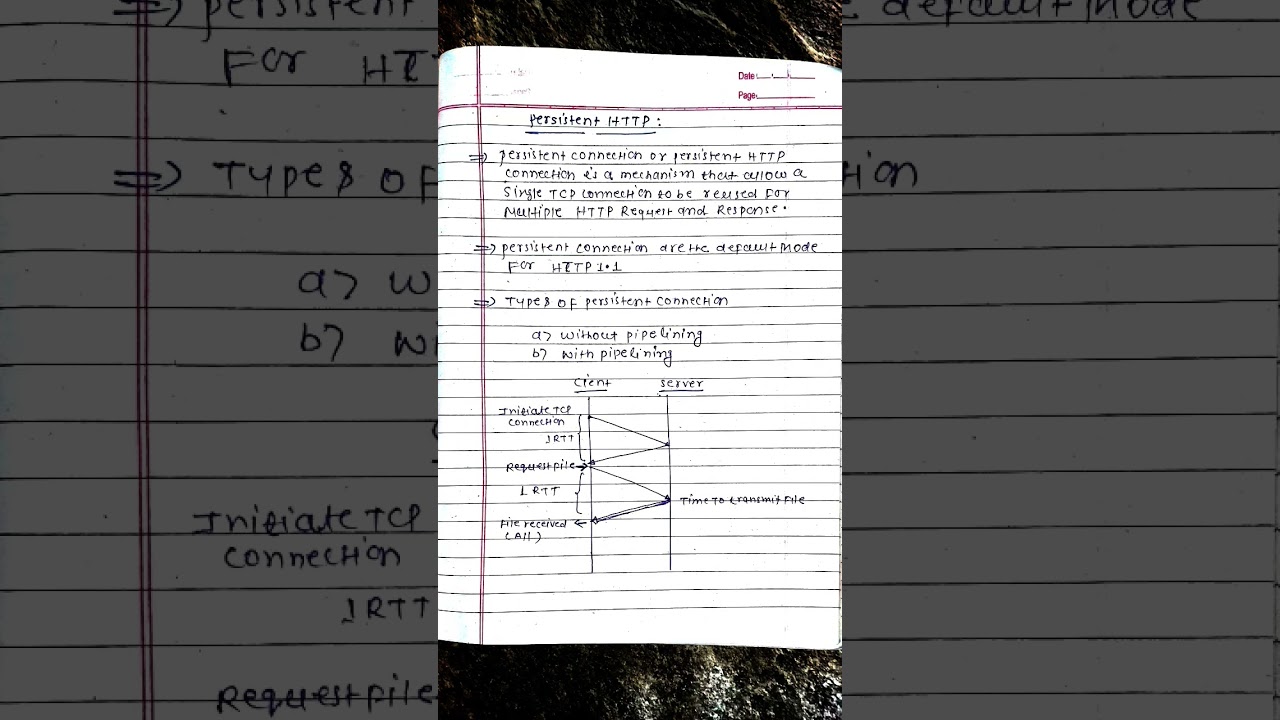 Date:
Page:
Persistent HTTP:
=> Persistent connection or persistent HTTP
connection is a mechanism that allow a
Single TCP connection to be reused for
Multiple HTTP Request and Response.
=> persistent connection are the default Mode
For HTTP 1.1
=> Types of persistent connection
a> without pipelining
b> with pipelining
Cient server
Initiate TCP
connection
1RTT
Request file
1 RTT
Time To transmit File
File received
(All)
=> persistent
default Mode
For HT
=> Types OF
ion
a> w
b> w
Initiate TCP
connection
1RTT
Request file